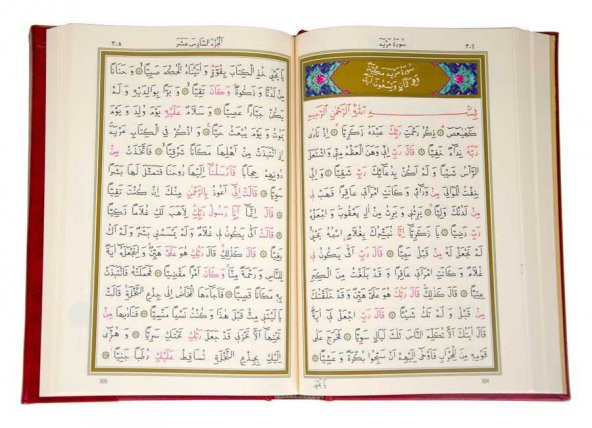 ٣٠٤
سورة مريم
سُورَةُ مَرْيَمَ مَكِّيَّةٌ
وَهِيَ ثَمَانٍ وَتِسْعُونَ اٰيَةً
بِسْمِ اللّٰهِ الرَّحْمٰنِ الرَّحِيمِ
كٓهٰيٰعٓصٓ ۞ ذِكْرُ رَحْمَتِ رَبِّكَ عَبْدَهُ زَكَرِيَّا ۞ اِذْ نَادٰى
رَبَّهُ نِدَٓاءً خَفِيًّا ۞ قَالَ رَبِّ اِنِّي وَهَنَ الْعَظْمُ مِنِّي وَاشْتَعَلَ
الرَّاْسُ شَيْبًا وَلَمْ اَكُنْ بِدُعَٓائِكَ رَبِّ شَقِيًّا ۞ وَاِنِّي
خِفْتُ الْمَوَالِيَ مِنْ وَرَٓاءِي وَكَانَتِ امْرَاَتِي عَاقِرًا فَهَبْ لِي
مِنْ لَدُنْكَ وَلِيًّا ۞ يَرِثُنِي وَيَرِثُ مِنْ اٰلِ يَعْقُوبَ وَاجْعَلْهُ
رَبِّ رَضِيًّا ۞ يَا زَكَرِيَّٓا اِنَّا نُبَشِّرُكَ بِغُلَامٍ اسْمُهُ يَحْيٰى
لَمْ نَجْعَلْ لَهُ مِنْ قَبْلُ سَمِيًّا ۞ قَالَ رَبِّ اَنّٰى يَكُونُ لِي
غُلَامٌ وَكَانَتِ امْرَاَتِي عَاقِرًا وَقَدْ بَلَغْتُ مِنَ الْكِبَرِ
عِتِيًّا ۞ قَالَ كَذٰلِكَ قَالَ رَبُّكَ هُوَ عَلَيَّ هَيِّنٌ وَقَدْ خَلَقْتُكَ
مِنْ قَبْلُ وَلَمْ تَكُ شَيْئًا ۞ قَالَ رَبِّ اجْعَلْ لِي اٰيَةً
قَالَ اٰيَتُكَ اَلَّا تُكَلِّمَ النَّاسَ ثَلٰثَ لَيَالٍ سَوِيًّا ۞ فَخَرَجَ عَلٰى
قَوْمِهِ مِنَ الْمِحْرَابِ فَاَوْحٰى اِلَيْهِمْ اَنْ سَبِّحُوا بُكْرَةً وَعَشِيًّا ۞
يَا يَحْيٰى
304
الجزء السادس عشر
٣٠٥
يَا يَحْيٰى خُذِ الْكِتَابَ بِقُوَّةٍ وَاٰتَيْنَاهُ الْحُكْمَ صَبِيًّا ۞ وَحَنَانًا
مِنْ لَدُنَّا وَزَكٰوةً وَكَانَ تَقِيًّا ۞ وَبَرًّا بِوَالِدَيْهِ وَلَمْ
يَكُنْ جَبَّارًا عَصِيًّا ۞ وَسَلَامٌ عَلَيْهِ يَوْمَ وُلِدَ وَيَوْمَ
يَمُوتُ وَيَوْمَ يُبْعَثُ حَيًّا ۞ وَاذْكُرْ فِي الْكِتَابِ مَرْيَمَ
اِذِ انْتَبَذَتْ مِنْ اَهْلِهَا مَكَانًا شَرْقِيًّا ۞ فَاتَّخَذَتْ مِنْ
دُونِهِمْ حِجَابًا فَاَرْسَلْنَٓا اِلَيْهَا رُوحَنَا فَتَمَثَّلَ لَهَا بَشَرًا
سَوِيًّا ۞ قَالَتْ اِنِّي اَعُوذُ بِالرَّحْمٰنِ مِنْكَ اِنْ كُنْتَ تَقِيًّا
۞ قَالَ اِنَّمَٓا اَنَا رَسُولُ رَبِّكِ لِاَهَبَ لَكِ غُلَامًا زَكِيًّا
۞ قَالَتْ اَنّٰى يَكُونُ لِي غُلَامٌ وَلَمْ يَمْسَسْنِي بَشَرٌ وَلَمْ اَكُ
بَغِيًّا ۞ قَالَ كَذٰلِكِ قَالَ رَبُّكِ هُوَ عَلَيَّ هَيِّنٌ وَلِنَجْعَلَهُ اٰيَةً
لِلنَّاسِ وَرَحْمَةً مِنَّا وَكَانَ اَمْرًا مَقْضِيًّا ۞ فَحَمَلَتْهُ فَانْتَبَذَتْ
بِهِ مَكَانًا قَصِيًّا ۞ فَاَجَٓاءَهَا الْمَخَاضُ اِلٰى جِذْعِ النَّخْلَةِ قَالَتْ
يَا لَيْتَنِي مِتُّ قَبْلَ هٰذَا وَكُنْتُ نَسْيًا مَنْسِيًّا ۞ فَنَادٰيهَا مِنْ
تَحْتِهَٓا اَلَّا تَحْزَنِي قَدْ جَعَلَ رَبُّكِ تَحْتَكِ سَرِيًّا ۞ وَهُزِّٓي
اِلَيْكِ بِجِذْعِ النَّخْلَةِ تُسَاقِطْ عَلَيْكِ رُطَبًا جَنِيًّا ۞
305